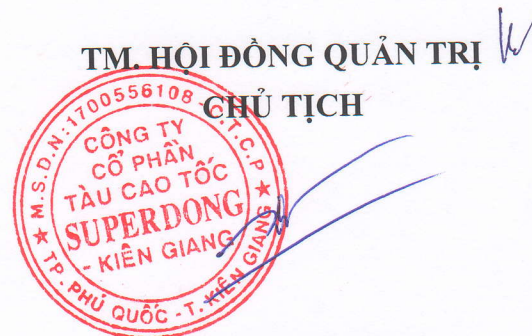 TM. HỘI ĐỒNG QUẢN TRỊ
CHỦ TỊCH
M.S.D.N:1700556108 - C.T.C.P
CÔNG TY
CỔ PHẦN
TÀU CAO TỐC
SUPERDONG
- KIÊN GIANG
TP. PHÚ QUỐC - T. KIÊN GIANG